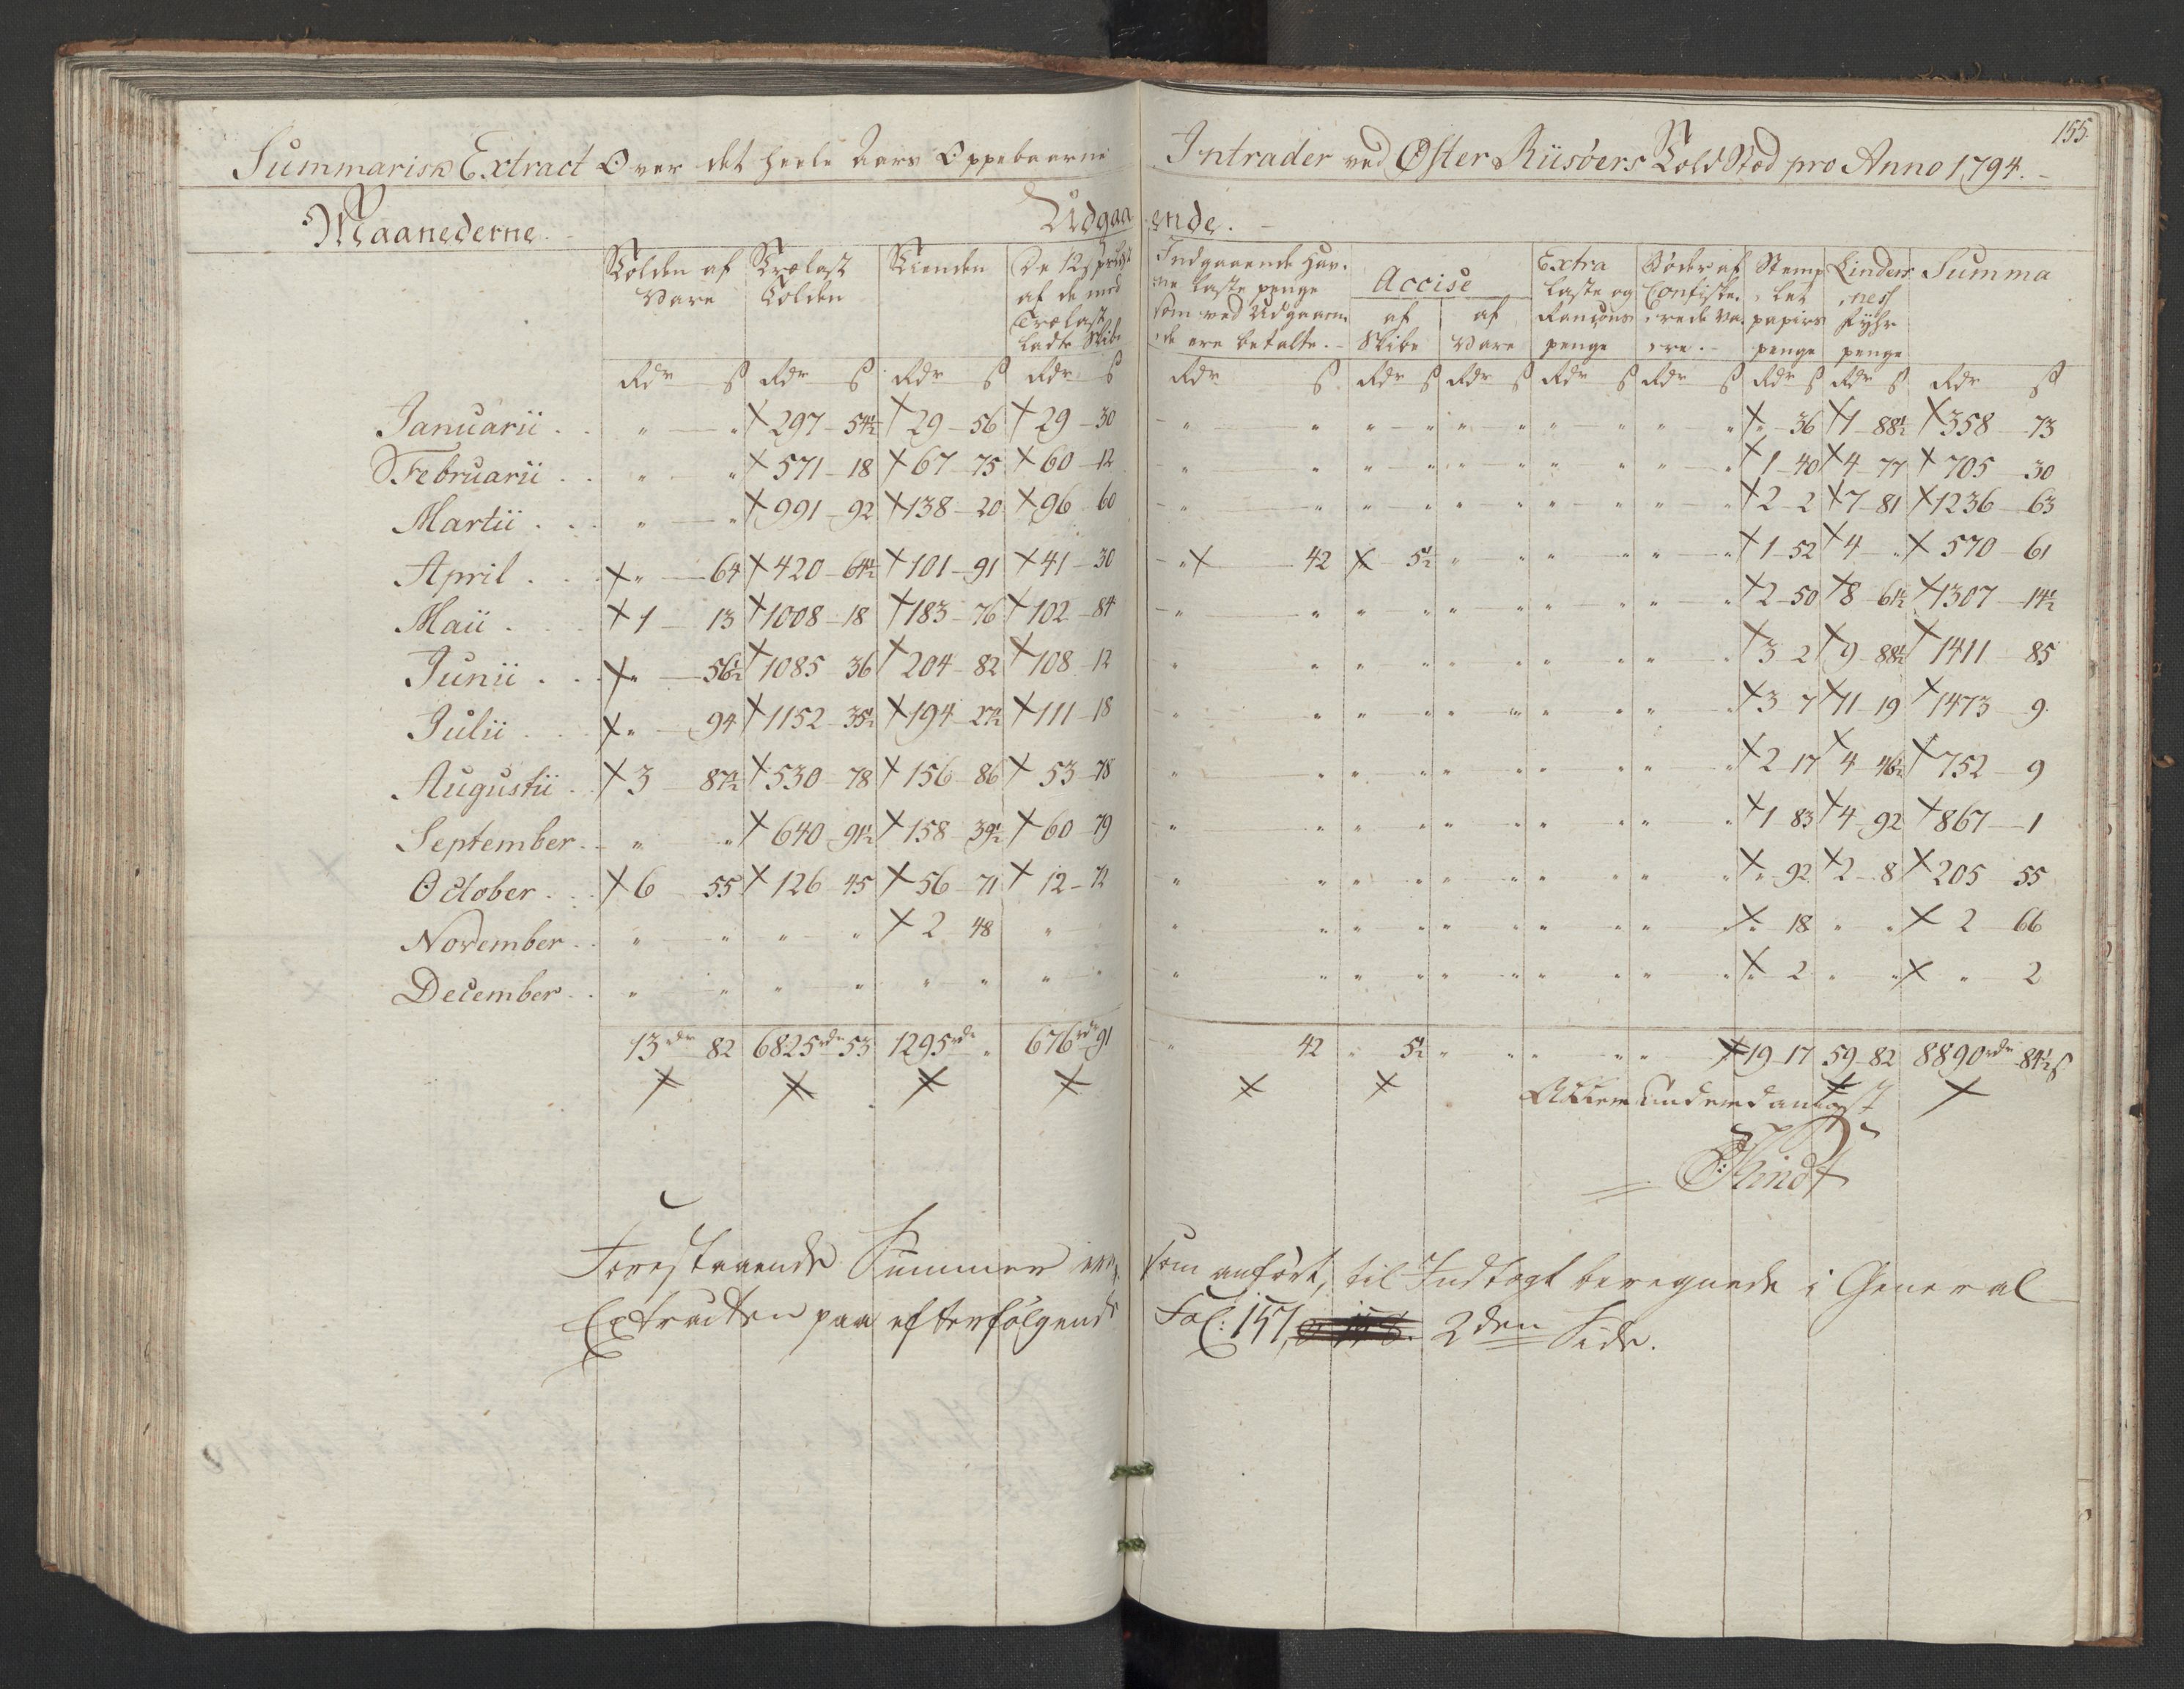 155.
Summarisk Extract Over det heele Aars Oppebaarne Intrader ved Øster Riisöers Told Sted pro Anno 1794.
Maanederne. Udgaaende.
Tolden af Vare | Trælast Tolden | Tienden | De 12 s pr læst af de med Trælast ladte Skibe | Indgaaende Havne laste penge som ved Udgaaende ere betalte. | Accise af Skibe | af Vare | Extra laste og Rançons penge | Bøder af Confisterede Vare. | Stemplet papirs penge | Lindersness Fyhr penge | Summa
Rdr s | Rdr s | Rdr s | Rdr s | Rdr s | Rdr s | Rdr s | Rdr s | Rdr s | Rdr s | Rdr s | Rdr s
Januarii . . " — " | 297 - 54½ | 29 - 56 | 29 - 30 | " — " | " — " | " — " | " — " | " — " | " - 36 | 1 - 88½ | 358 - 73
Februarii . . " — " | 571 - 18 | 67 - 75 | 60 - 12 | " — " | " — " | " — " | " — " | " — " | 1 - 40 | 4 - 77 | 705 - 30
Martii . . " — " | 991 - 92 | 138 - 20 | 96 - 60 | " — " | " — " | " — " | " — " | " — " | 2 - 2 | 7 - 81 | 1236 - 63
April . . " — 64 | 420 - 64½ | 101 - 91 | 41 - 30 | " — 42 | 5½ | " — " | " — " | " — " | 1 - 52 | 4 - " | 570 - 61
Maii . . 1 — 13 | 1008 - 18 | 183 - 76 | 102 - 84 | " — " | " — " | " — " | " — " | " — " | 2 - 50 | 8 - 61½ | 1307 - 14½
Junii . . " — 56½ | 1085 - 36 | 204 - 82 | 108 - 12 | " — " | " — " | " — " | " — " | " — " | 3 - 2 | 9 - 88½ | 1411 - 85
Julii . . " — 94 | 1152 - 35½ | 194 - 27½ | 111 - 18 | " — " | " — " | " — " | " — " | " — " | 3 - 7 | 11 - 19 | 1473 - 9
Augustii . . 3 — 87½ | 530 - 78 | 156 - 86 | 53 - 78 | " — " | " — " | " — " | " — " | " — " | 2 - 17 | 4 - 46½ | 752 - 9
September . . " — " | 640 - 91½ | 158 - 39½ | 60 - 79 | " — " | " — " | " — " | " — " | " — " | 1 - 83 | 4 - 92 | 867 - 1
October . . 6 — 55 | 126 - 45 | 56 - 71 | 12 - 72 | " — " | " — " | " — " | " — " | " — " | " - 92 | 2 - 8 | 205 - 55
November . . " — " | " — " | 2 - 48 | " — " | " — " | " — " | " — " | " — " | " — " | " - 18 | " — " | 2 - 66
December . . " — " | " — " | " — " | " — " | " — " | " — " | " — " | " — " | " — " | " - 2 | " — " | " - 2
13 rdr 82 | 6825 rdr 53 | 1295 rdr " | 676 rdr 91 | " 42 | " 5½ | " " | " " | " " | 19 - 17 | 59 - 82 | 8890 rdr 84½ s
Allerunderdanigst
Flindt
Forestaaende Summer ere, som anført, til Indtægt beregnede i General
Extracten paa efterfølgende Fol: 157, 2den Side.